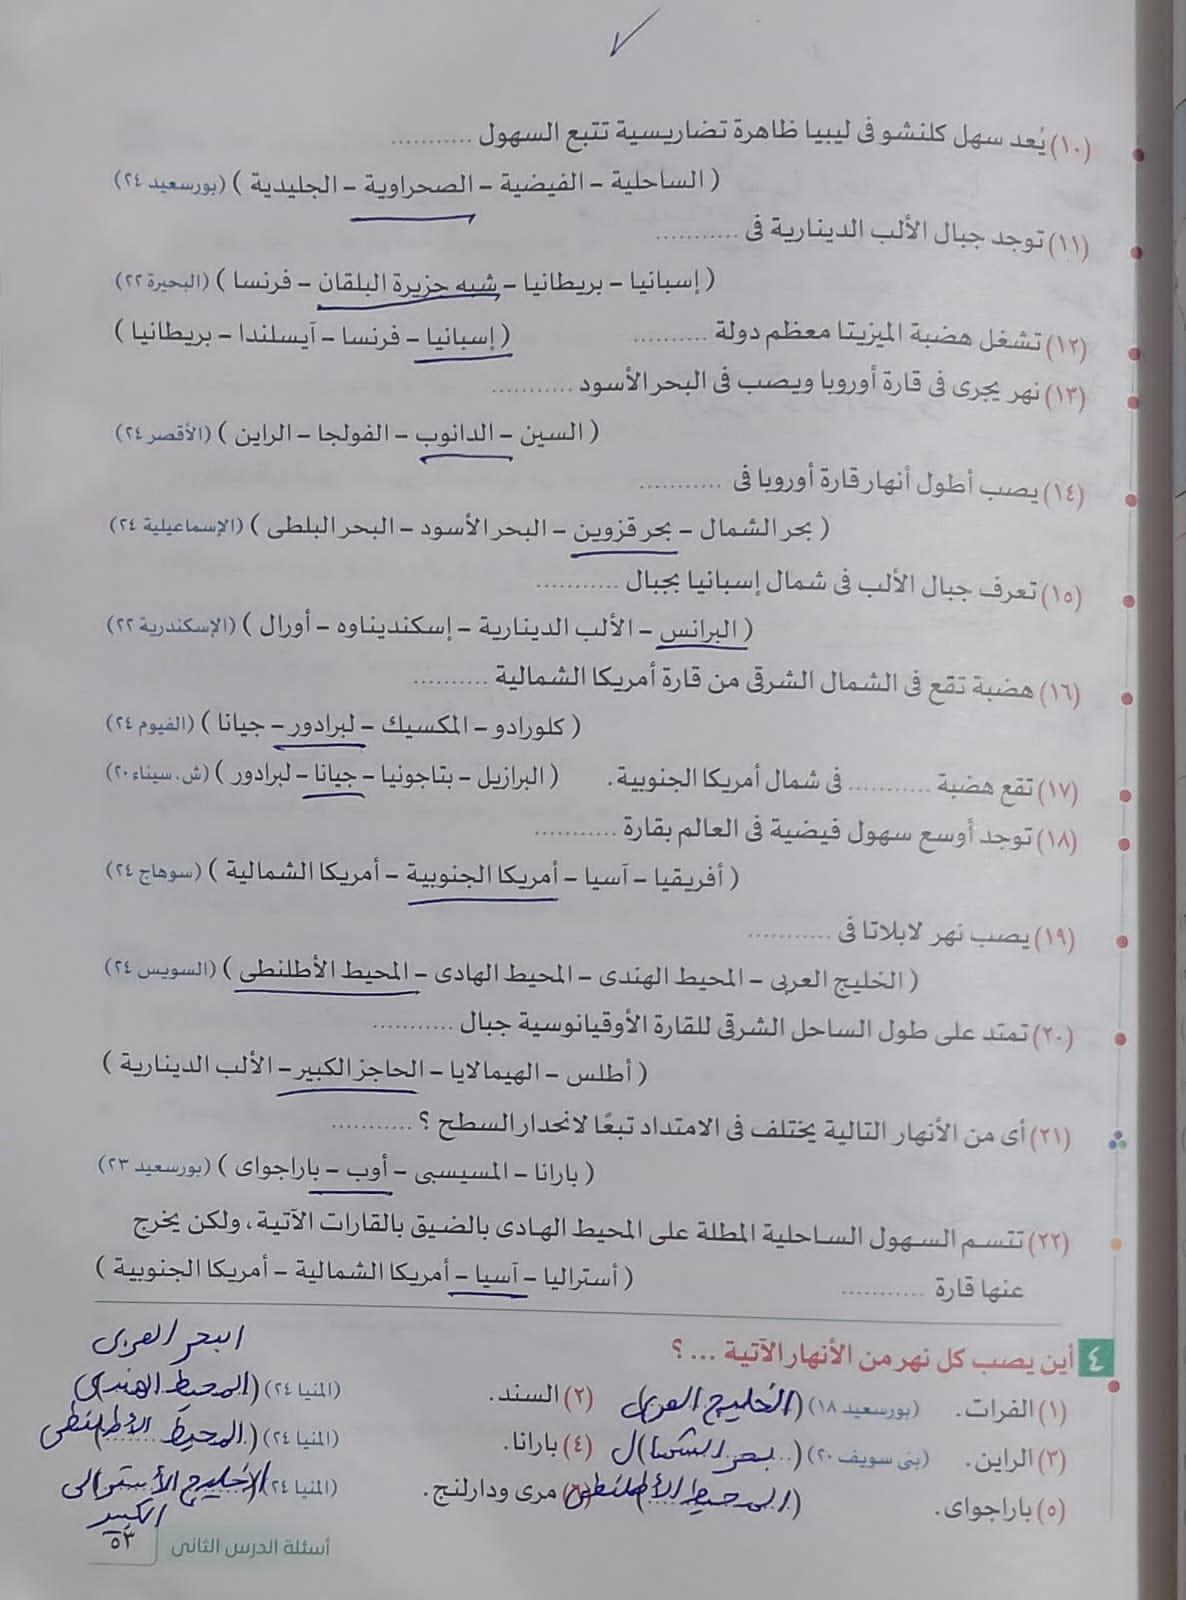 (١٠) يُعد سهل كلنشو فى ليبيا ظاهرة تضاريسية تتبع السهول ...........
( الساحلية - الفيضية - الصحراوية - الجليدية ) (بورسعيد ٢٤)
(١١) توجد جبال الألب الدينارية فى ...........
( إسبانيا - بريطانيا - شبه جزيرة البلقان - فرنسا ) (البحيرة ٢٢)
(١٢) تشغل هضبة الميزيتا معظم دولة .......... ( إسبانيا - فرنسا - آيسلندا - بريطانيا )
(١٣) نهر يجرى فى قارة أوروبا ويصب فى البحر الأسود ...........
( السين - الدانوب - الفولجا - الراين ) (الأقصر ٢٤)
(١٤) يصب أطول أنهار قارة أوروبا فى ...........
( بحر الشمال - بحر قزوين - البحر الأسود - البحر البلطى ) (الإسماعيلية ٢٤)
(١٥) تعرف جبال الألب فى شمال إسبانيا بجبال ...........
( البرانس - الألب الدينارية - إسكنديناوه - أورال ) (الإسكندرية ٢٢)
(١٦) هضبة تقع فى الشمال الشرقى من قارة أمريكا الشمالية ..........
( كلورادو - المكسيك - لبرادور - جيانا ) (الفيوم ٢٤)
(١٧) تقع هضبة ........... فى شمال أمريكا الجنوبية. ( البرازيل - بتاجونيا - جيانا - لبرادور ) (ش. سيناء ٢٠)
(١٨) توجد أوسع سهول فيضية فى العالم بقارة ...........
( أفريقيا - آسيا - أمريكا الجنوبية - أمريكا الشمالية ) (سوهاج ٢٤)
(١٩) يصب نهر لابلاتا فى ...........
( الخليج العربى - المحيط الهندى - المحيط الهادى - المحيط الأطلنطى ) (السويس ٢٤)
(٢٠) تمتد على طول الساحل الشرقى للقارة الأوقيانوسية جبال ...........
( أطلس - الهيمالايا - الحاجز الكبير - الألب الدينارية )
(٢١) أى من الأنهار التالية يختلف فى الامتداد تبعًا لانحدار السطح ؟ ...........
( بارانا - المسيسبى - أوب - باراجواى ) (بورسعيد ٢٣)
(٢٢) تتسم السهول الساحلية المطلة على المحيط الهادى بالضيق بالقارات الآتية، ولكن يخرج
عنها قارة ........... ( أستراليا - آسيا - أمريكا الشمالية - أمريكا الجنوبية )
البحر العربى
٤ أين يصب كل نهر من الأنهار الآتية ... ؟
(١) الفرات. (بورسعيد ١٨) (الخليج العربى (٢) السند. (المنيا ٢٤) (المحيط الهندى)
(٣) الراين. (بنى سويف ٢٠) (بحر الشمال) (٤) بارانا. (المنيا ٢٤) (المحيط الأطلنطى)
(٥) باراجواى. (المحيط الأطلنطى) (٦) مرى ودارلنج. (المنيا ٢٤) (الخليج الأسترالى
الكبير
أسئلة الدرس الثانى ٥٣